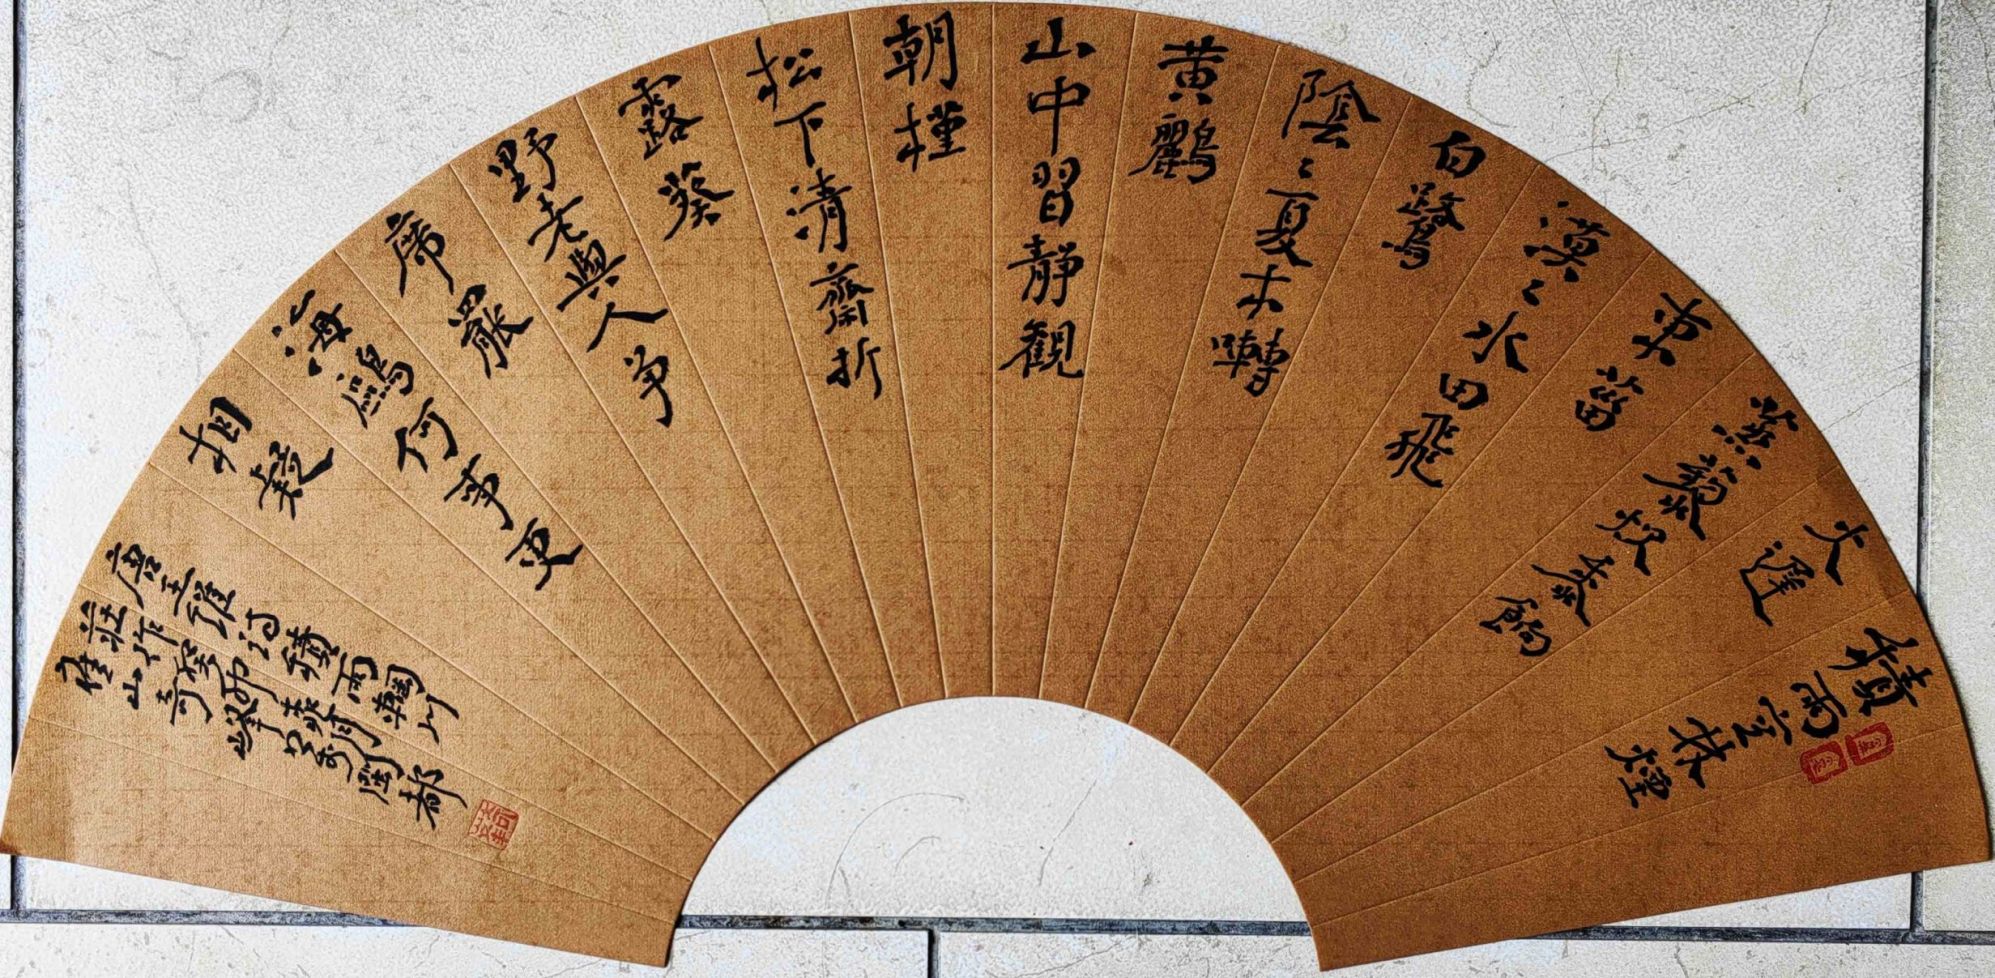 積雨空林煙
火遲
蒸藜炊黍餉
東菑
漠〻水田飛
白鷺
陰〻夏木囀
黄鸝
山中習靜観
朝槿
松下清齋折
露葵
野老與人争
席罷
海鷗何事更
相疑
唐王維詩積雨輞川
莊作癸卯春
山奇峰